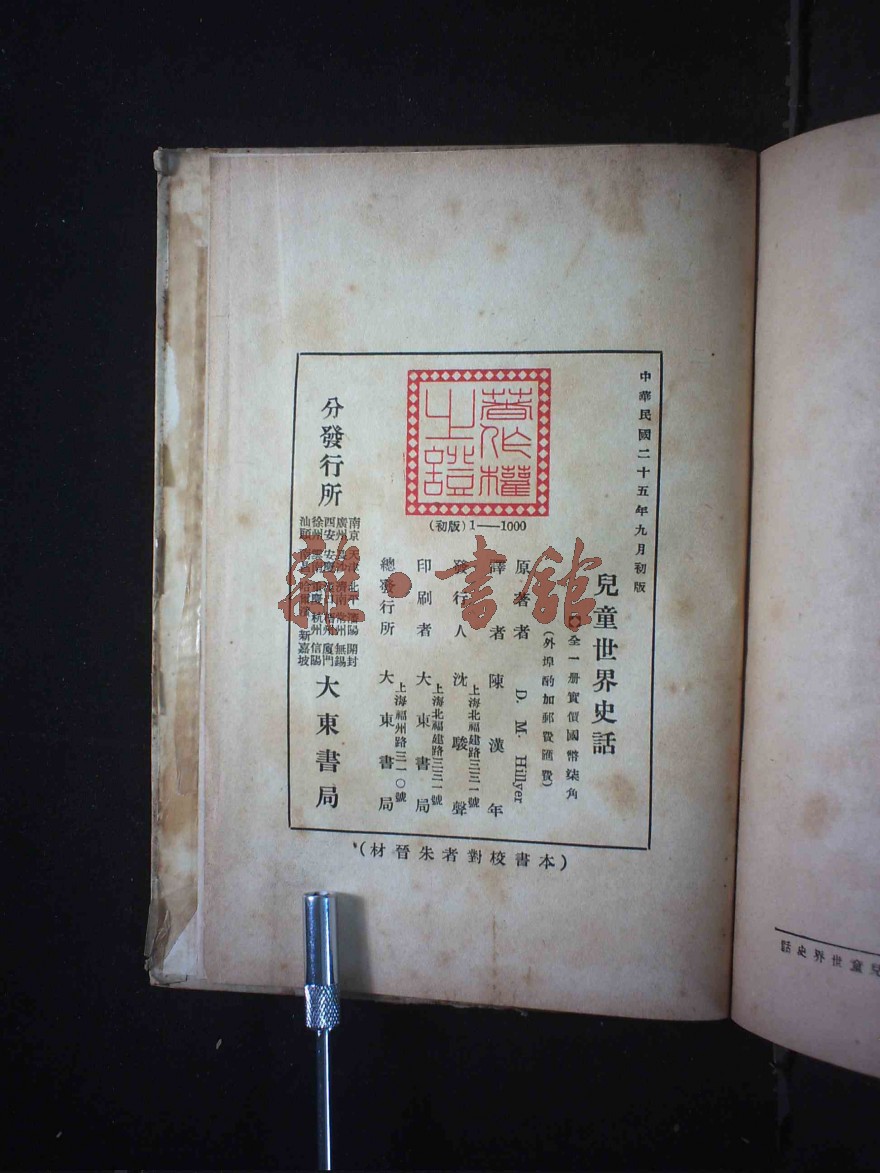 中華民國二十五年九月初版
兒童世界史話
全一册實價國幣柒角
(外埠酌加郵費匯費)
原著者 D. M. Hillyer
譯者 陳漢年
發行人 沈駿聲
上海北福建路三三一號
印刷者 大東書局
上海北福建路三三一號
總發行所 大東書局
上海福州路三一〇號
著作權
之證
(初版) 1——1000
分發行所
南京 天津 北平 瀋陽 開封
廣州 長沙 濟南 常州 無錫
西安 安慶 漢口 廈門
徐州 重慶 杭州 信陽
汕頭 哈爾濱 新嘉坡
大東書局
(本書校對者朱晉材)
兒童世界史話
雜·書館